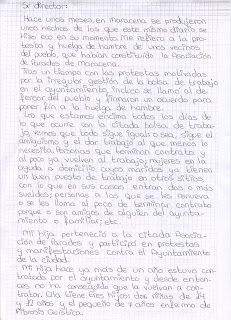 Sr director:
Hace unos meses, en maracena se produjeron
unos hechos de los que este mismo diario se
hizo eco en su momento. Me refiero a la pro-
testa y huelga de hambre de unos vecinos
del pueblo, que habían constituido la Asociación
de Parados de Maracena.
Tras un tiempo con las protestas motivadas
por la irregular gestión de la bolsa de trabajo
en el ayuntamiento, incluso se llamó al de-
fensor del pueblo y firmaron un acuerdo para
poner fin a la huelga de hambre.
Los que estamos encima todos los días de
lo que ocurre con la citada bolsa de traba-
jo, vemos que todo sigue igual; o sea, sigue el
amiguismo y el dar trabajo al que menos lo
necesita. Personas que terminan contrato y
al poco ya vuelven al trabajo; mujeres en la
ayuda a domicilio cuyos maridos ya tienen
un buen puesto de trabajo en otros sitios,
con lo que en sus casas entran dos o más
sueldos; personas a las que se les renueva
o se les llama al poco de terminar contrato
porque o son amigos de alguien del ayunta-
miento o familiar; etc.
Mi hija perteneció a la citada Asocia-
ción de Parados y participó en protestas
y manifestaciones contra el Ayuntamiento
de la ciudad.
Mi hija hace ya más de un año estuvo con-
tratada por el ayuntamiento y desde enton-
ces no ha conseguido que la vuelvan a con-
tratar. Ella tiene tres hijos: dos niñas de 14
y 12 años y el pequeño de 7 años enfermo de
Fibrosis Quística.